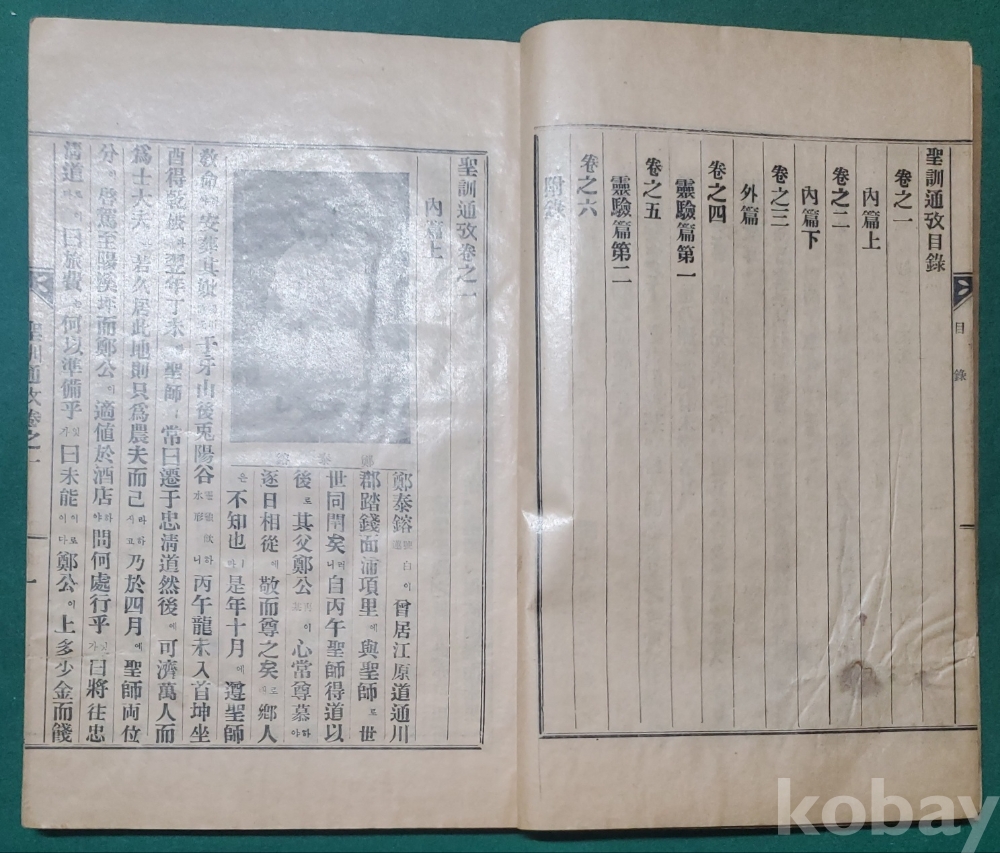 聖訓通攷目錄
卷之一
內篇上
卷之二
內篇下
卷之三
外篇
卷之四
靈驗篇第一
卷之五
靈驗篇第二
卷之六
附錄
目錄
聖訓通攷卷之一
內篇上
鄭泰鎔
鄭泰鎔 이 曾居江原道通川
郡踏錢面浦項里 에 與聖師 로 世
世同閈矣 러니 自丙午聖師得道以
後 로 其父鄭公 이 心常尊慕 하야
逐日相從 에 敬而尊之矣 로되 鄕人
은 不知也 하다 是年十月 에 遵聖師
敎命 安葬其 于牙山後兎陽谷 하니 丙午龍未入首坤坐
酉得乾破 翌年丁未 聖師 常曰遷于忠淸道然後 에 可濟萬人而
爲士大夫 若久居此地則只爲農夫而已 라하시고 乃於四月 에 聖師両位
分 이 啓駕至陽溪 而鄭公 이 適値於酒店 하야 問何處行乎 잇가 曰將往忠
淸道 曰旅費 何以準備乎 잇가 曰未能 이로이다 鄭公 이 上多少金而餞
聖訓通攷卷之一
一
kobay